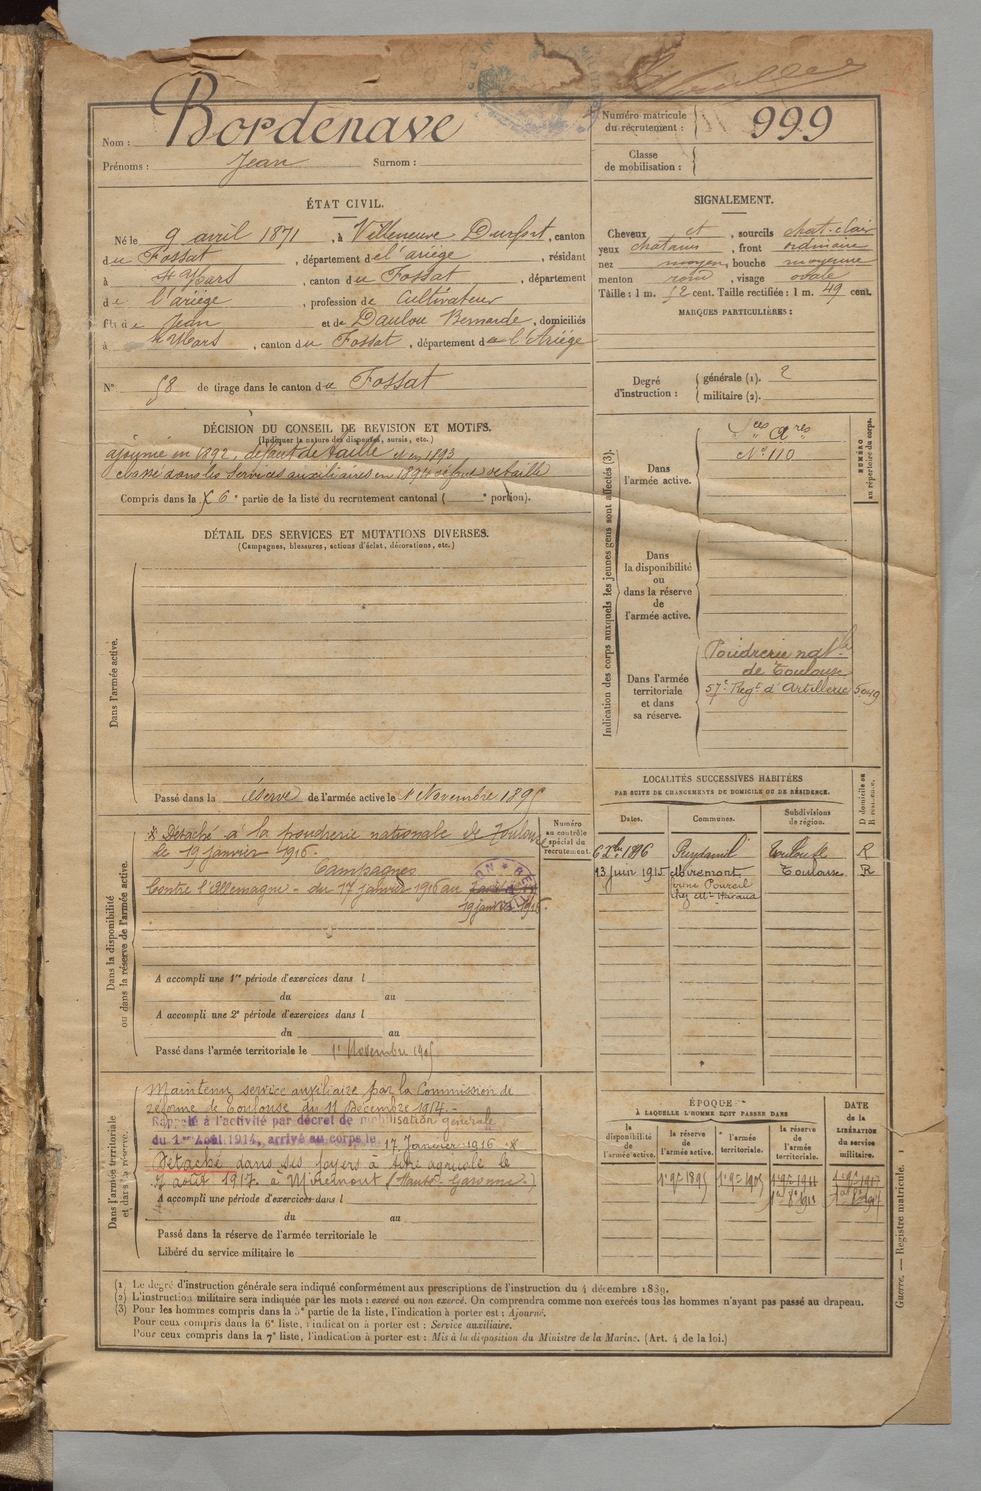 Nom : Bordenave
Prénoms : Jean Surnom :
Numéro matricule
du recrutement : 999
Classe
de mobilisation :
ÉTAT CIVIL.
Né le 9 avril 1871, à Villeneuve Durfort, canton
du Fossat, département de l'ariège, résidant
à 4 Mars, canton du Fossat, département
de l'ariège, profession de Cultivateur
fils de Jean et de Daulou Bernarde, domiciliés
à 4 Mars, canton du Fossat, département de l'Ariége
N° 58 de tirage dans le canton du Fossat
SIGNALEMENT.
Cheveux et, sourcils chat-clair
yeux chatains, front ordinaire
nez moyen, bouche moyenne
menton rond, visage ovale
Taille : 1 m. 52 cent. Taille rectifiée : 1 m. 49 cent.
MARQUES PARTICULIÈRES :
Degré
d'instruction :
générale (1). 2
militaire (2).
DÉCISION DU CONSEIL DE REVISION ET MOTIFS.
(Indiquer la nature des dispenses, sursis, etc.)
ajourné en 1892, défaut de taille et en 1893
classé dans les services auxiliaires en 1894 défaut de taille
Compris dans la 6e partie de la liste du recrutement cantonal ( e portion).
DÉTAIL DES SERVICES ET MUTATIONS DIVERSES.
(Campagnes, blessures, actions d'éclat, décorations, etc.)
Dans l'armée active.
Passé dans la réserve de l'armée active le 1 Novembre 1895
Indication des corps auxquels les jeunes gens sont affectés (3).
NUMÉRO
au répertoire du corps.
Dans
l'armée active.
Sces Ares
N° 110
Dans
la disponibilité
ou
dans la réserve
de
l'armée active.
Dans l'armée
territoriale
et dans
sa réserve.
Poudrerie natle
de Toulouse
57e Regt d'Artillerie 5049
LOCALITÉS SUCCESSIVES HABITÉES
PAR SUITE DE CHANGEMENTS DE DOMICILE OU DE RÉSIDENCE.
Dates. Communes. Subdivisions
de région.
D domicile ou
R résidence.
6 Xbre 1896 Puydaniel Toulouse R
13 juin 1915 Miremont, Toulouse R
chez Me Havaud
Dans la disponibilité
ou dans la réserve de l'armée active.
Numéro
au contrôle
spécial du
recrutement.
* Détaché à la poudrerie nationale de Toulouse
le 19 janvier 1916.
Campagnes
Contre l'Allemagne - du 17 janvier 1916 au
19 janvier 1916
A accompli une 1re période d'exercices dans l
du au
A accompli une 2e période d'exercices dans l
du au
Passé dans l'armée territoriale le 1er Novembre 1905
Dans l'armée territoriale
et dans sa réserve.
Maintenu service auxiliaire par la Commission de
réforme de Toulouse du 11 Décembre 1914. -
Rappelé à l'activité par décret de mobilisation générale
du 1er Août 1914, arrivé au corps le 17 Janvier 1916 *
Détaché dans ses foyers à titre agricole le
7 août 1917 à Miremont (Haute-Garonne.)
A accompli une période d'exercices dans l
du au
Passé dans la réserve de l'armée territoriale le
Libéré du service militaire le
ÉPOQUE
À LAQUELLE L'HOMME DOIT PASSER DANS
DATE
de la
LIBÉRATION
du service
militaire.
la
disponibilité
de
l'armée active.
la réserve
de
l'armée active.
l'armée
territoriale.
la réserve
de
l'armée
territoriale.
1er 9bre 1895 1er 9bre 1905 1er 9bre 1911 1er 9bre 1917
(1) Le degré d'instruction générale sera indiqué conformément aux prescriptions de l'instruction du 4 décembre 1889.
(2) L'instruction militaire sera indiquée par les mots : exercé ou non exercé. On comprendra comme non exercés tous les hommes n'ayant pas passé au drapeau.
(3) Pour les hommes compris dans la 5e partie de la liste, l'indication à porter est : Ajourné.
Pour ceux compris dans la 6e liste, l'indication à porter est : Service auxiliaire.
Pour ceux compris dans la 7e liste, l'indication à porter est : Mis à la disposition du Ministre de la Marine. (Art. 4 de la loi.)
Guerre. — Registre matricule. 1